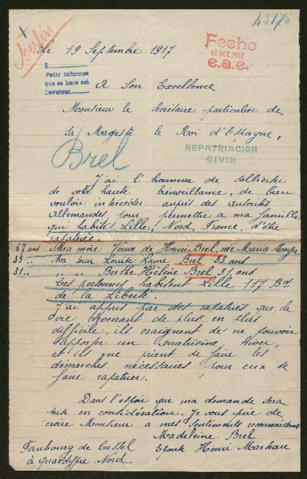 Fecho
12 OCT. 1917
e.a.e.
le 19 Septembre 1917
A Son Excellence
Monsieur le Secrétaire particulier de
sa Majesté le Roi d'Espagne,
Brel
REPATRIACIÓN
CIVIL
J'ai l'honneur de solliciter
de votre haute bienveillance, de bien
vouloir intercéder auprès des autorités
allemandes pour permettre à ma famille
qui habite Lille, Nord, France, d'être
rapatriée.
67 ans Ma mère Veuve de Henri Brel, née Maria
33 Ma sœur Louise Laure Brel 33 ans
31 Berthe Hélène Brel 31 ans
Ces personnes habitent Lille 117 Bd
de la Liberté.
J'ai appris par des rapatriés que la
vie devenant de plus en plus
difficile, ils craignent de ne pouvoir
supporter un quatrième hiver,
et ils me prient de faire les
démarches nécessaires pour eux de
faire rapatrier.
Dans l'espoir que ma demande sera
prise en considération. Je vous prie de
croire Monsieur à mes sentiments reconnaissants
Madeleine Brel
Faubourg de Cassel
Epouse Henri
à Nord